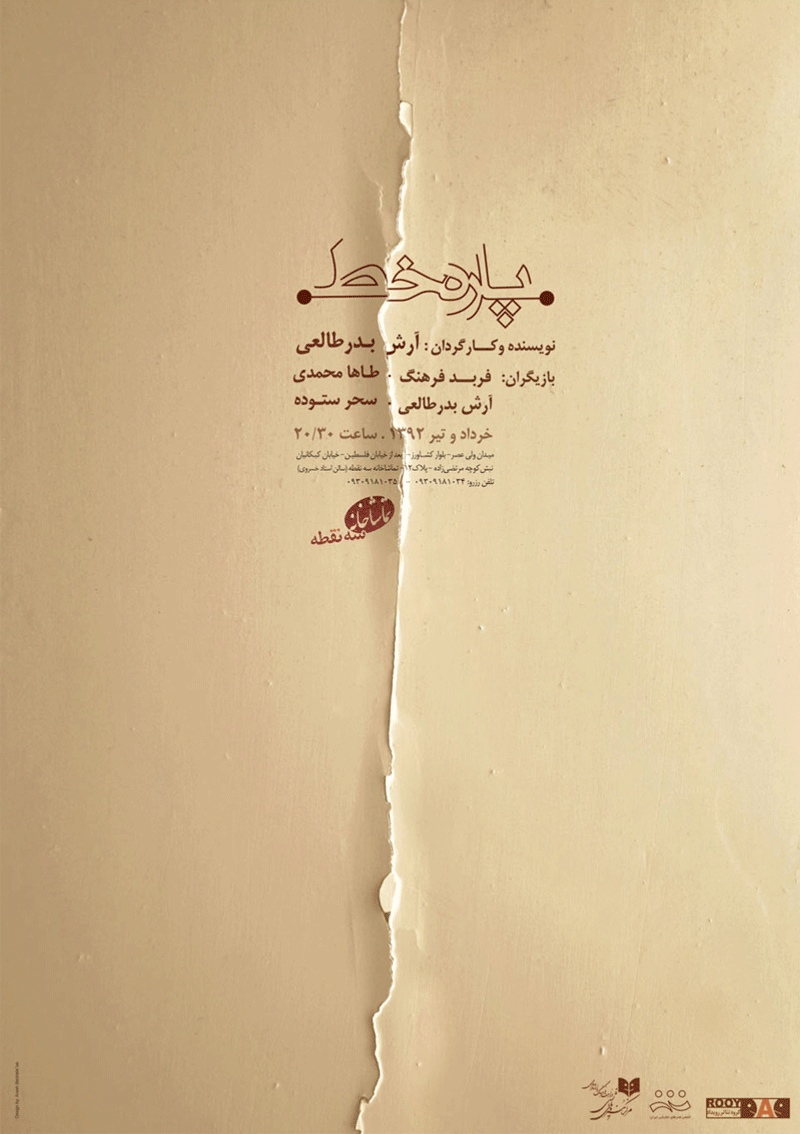 پاره خط
نویسنده و کارگردان: آرش بدرطالعی
بازیگران: فربد فرهنگ . طاها محمدی
آرش بدرطالعی . سحر ستوده
خرداد و تیر ۱۳۹۲ . ساعت ۲۰/۳۰
میدان ولی عصر - بلوار کشاورز - بعد از خیابان فلسطین - خیابان کبکانیان
نبش کوچه مرتضی‌زاده - پلاک ۱۲ - تماشاخانه سه نقطه (سالن استاد خسروی)
تلفن رزرو: ۰۹۳۰۹۱۸۱۰۳۴ - ۰۹۳۰۹۱۸۱۰۳۵
تماشاخانه
سه نقطه
ROOY
DAD
گروه تئاتر رویداد